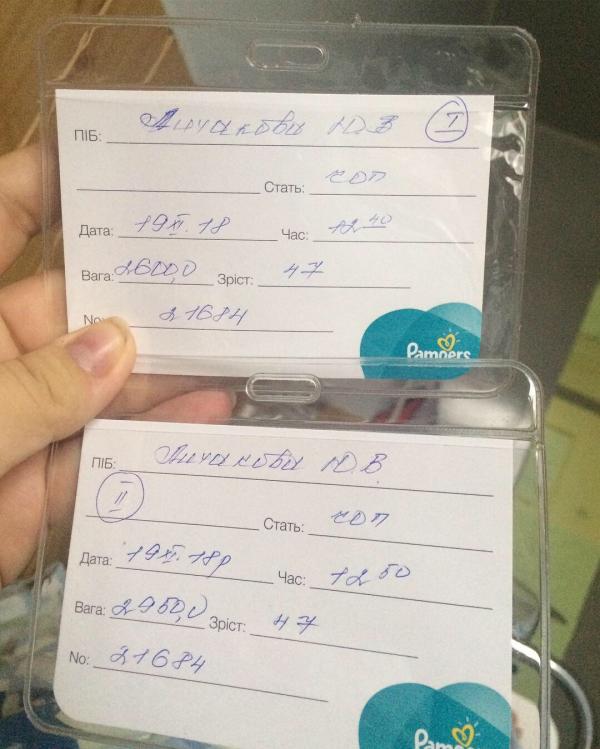 ПІБ: Личакова Ю.В I
Стать: чол
Дата: 19 XI. 18 Час: 12 40
Вага: 2600,0 Зріст: 47
No: 21684
Pampers
ПІБ: Личакова Ю.В.
II
Стать: чол
Дата: 19 XI. 18р Час: 12 50
Вага: 2950,0 Зріст: 47
No: 21684
Pampers